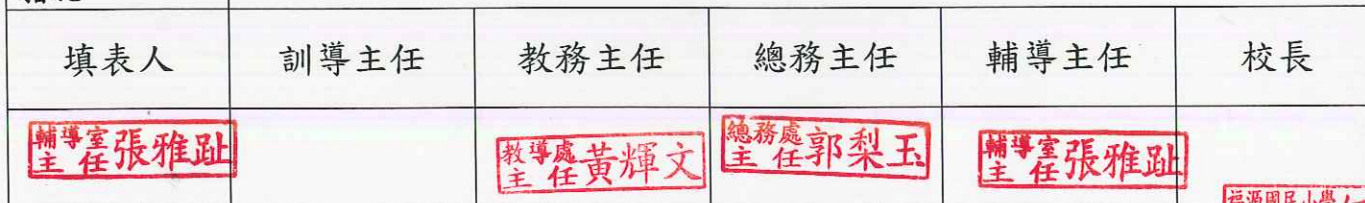 填表人 訓導主任 教務主任 總務主任 輔導主任 校長
輔導室主任 張雅趾
教導處主任 黃輝文
總務處主任 郭梨玉
輔導室主任 張雅趾
福源國民小學